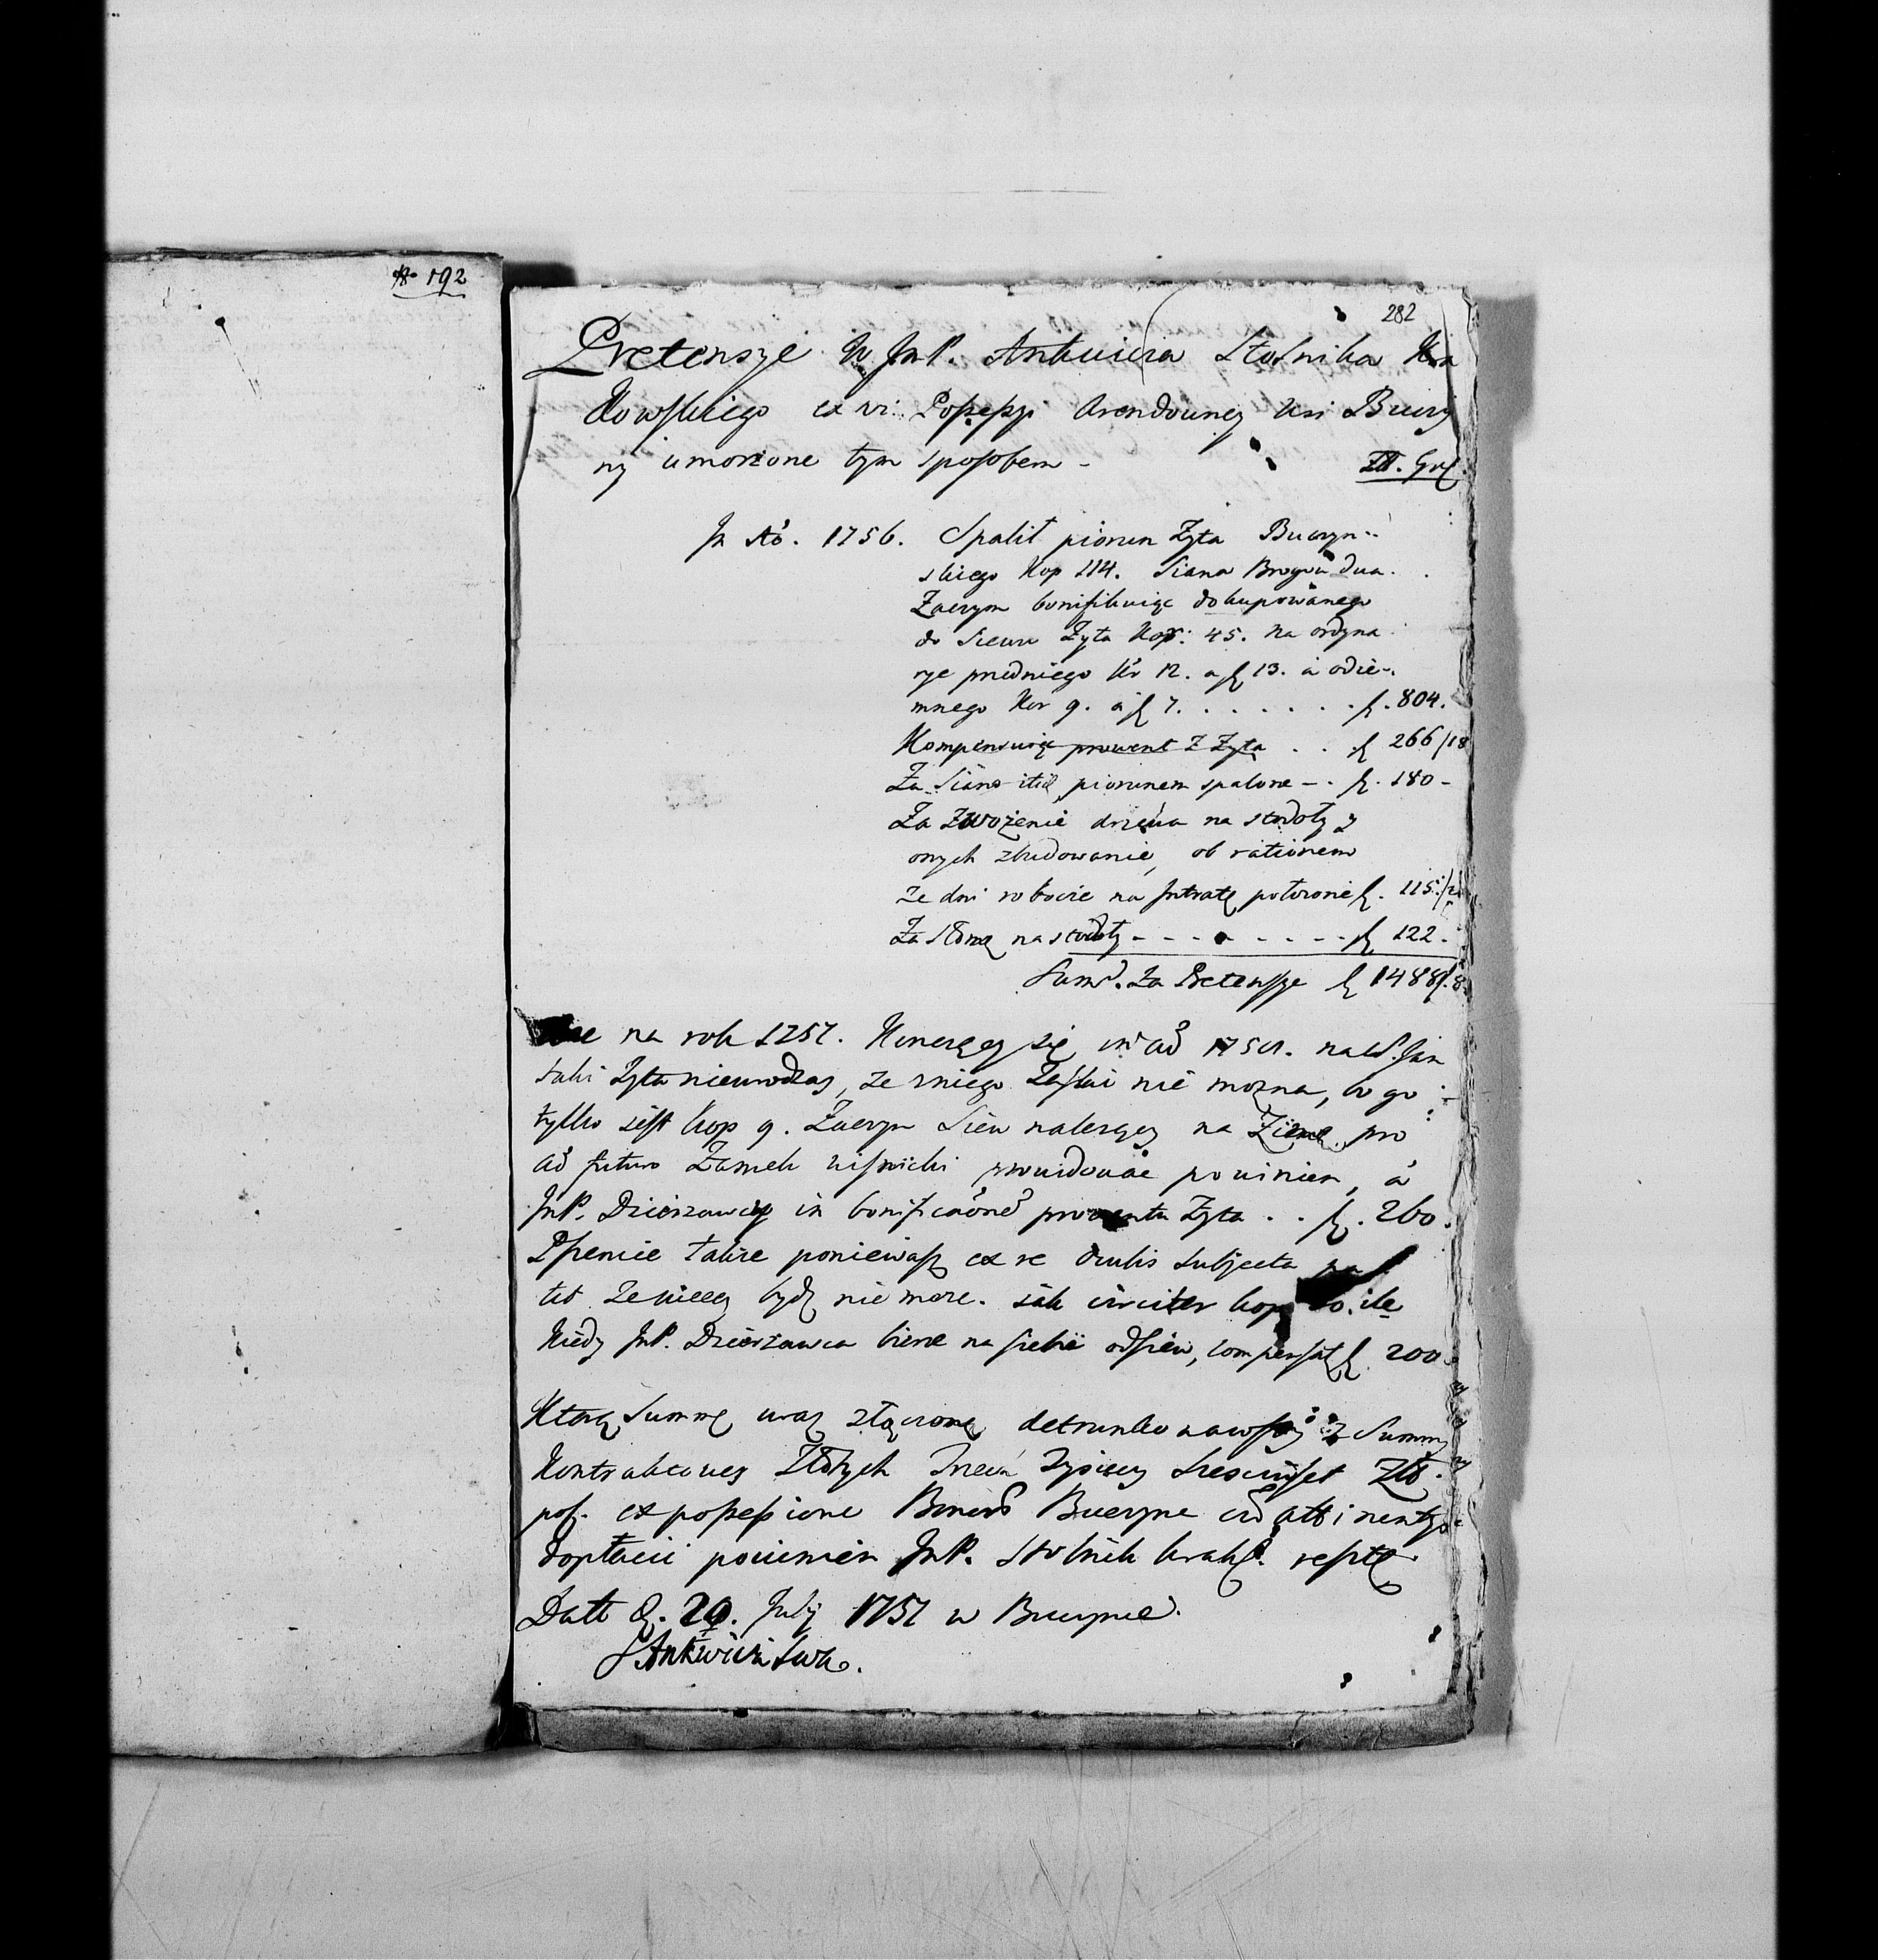 192
282
Pretensye W JmP. Ankwicza Stolnika Kra
kowskiego ex vi Possessyi Arendowney Wsi Buczy
ny umorzone tym sposobem -
Zł. Gr
In Ao. 1756. Spalił piorun Zyta Buczyn-
skiego Kop 114. Siana Brogów dwa.
Zaczym bonifikuiąc dokupowanego
do Siewu Zyta Kor: 45. na ordyna
rye predniego Kr 12. a f 13. a odie-
mnego Kor 9. a f 7. . . . . . . f. 804.
Kompensuię prowent z Zyta . . f 266/18
Za Siano itid piorunem spalone - . f. 180 -
Za Zwożenie drzewa na stodoły y
onych zbudowanie, ob rationem
ze dni robocie na Intratę położone f. 115:/20
Za Słomę na stodoły - - - - - - - - f 122.
Sum. Za Pretensye f 1488f.8
na rok 1757. Kączący się in Ad 1758. na S. Jan
taki Zyta nieurodzay, że z niego Zasiać nie mozna, bo go
tylko iest kop 9. Zaczym Siew należący na Zimę pro
Ad futuro Zamek Wisnicki prowidować powinien, a
JmP. Dzierzawcy in bonificaone prowentu Zyta . . f. 260.
Pszenice także ponieważ ex re oculis subjecta
tet że więcey bydź nie może. iak circiter kop ile
Kiedy JmP. Dzierzawca bierze na siebie odsiew, compensat f 200.
Którą Summę wraz złączoną detrunkowawszy z Summy
Kontraktowey Złotych Trzech Tysięcy Sześciuset Zł.
pol. ex possessione Bonor Buczyne cu attinentys
dopłacić powinien JmP. Stolnik Krak. resztę
Datt d. 29. July 1757 w Buczynie.
Ankwicz